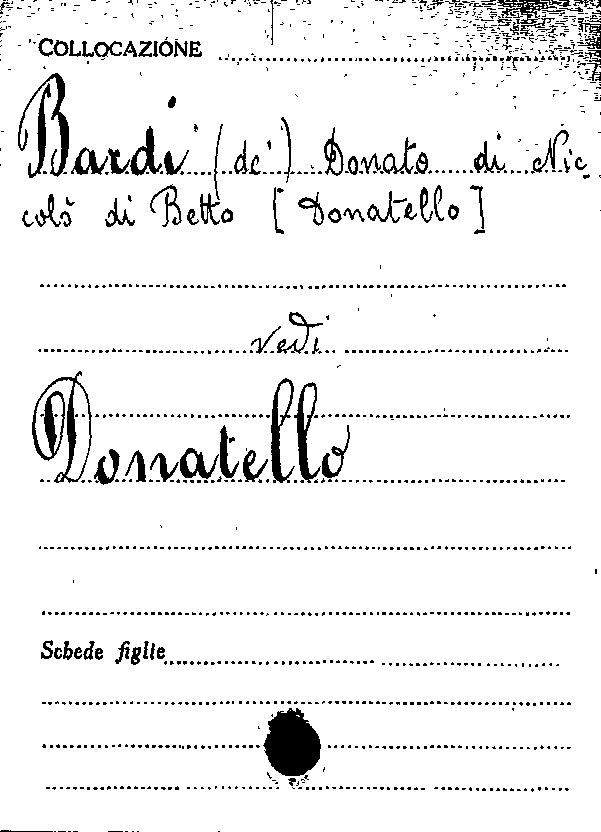 COLLOCAZIONE
Bardi (de') Donato di Nic-
colò di Betto [Donatello]
vedi
Donatello
Schede figlie